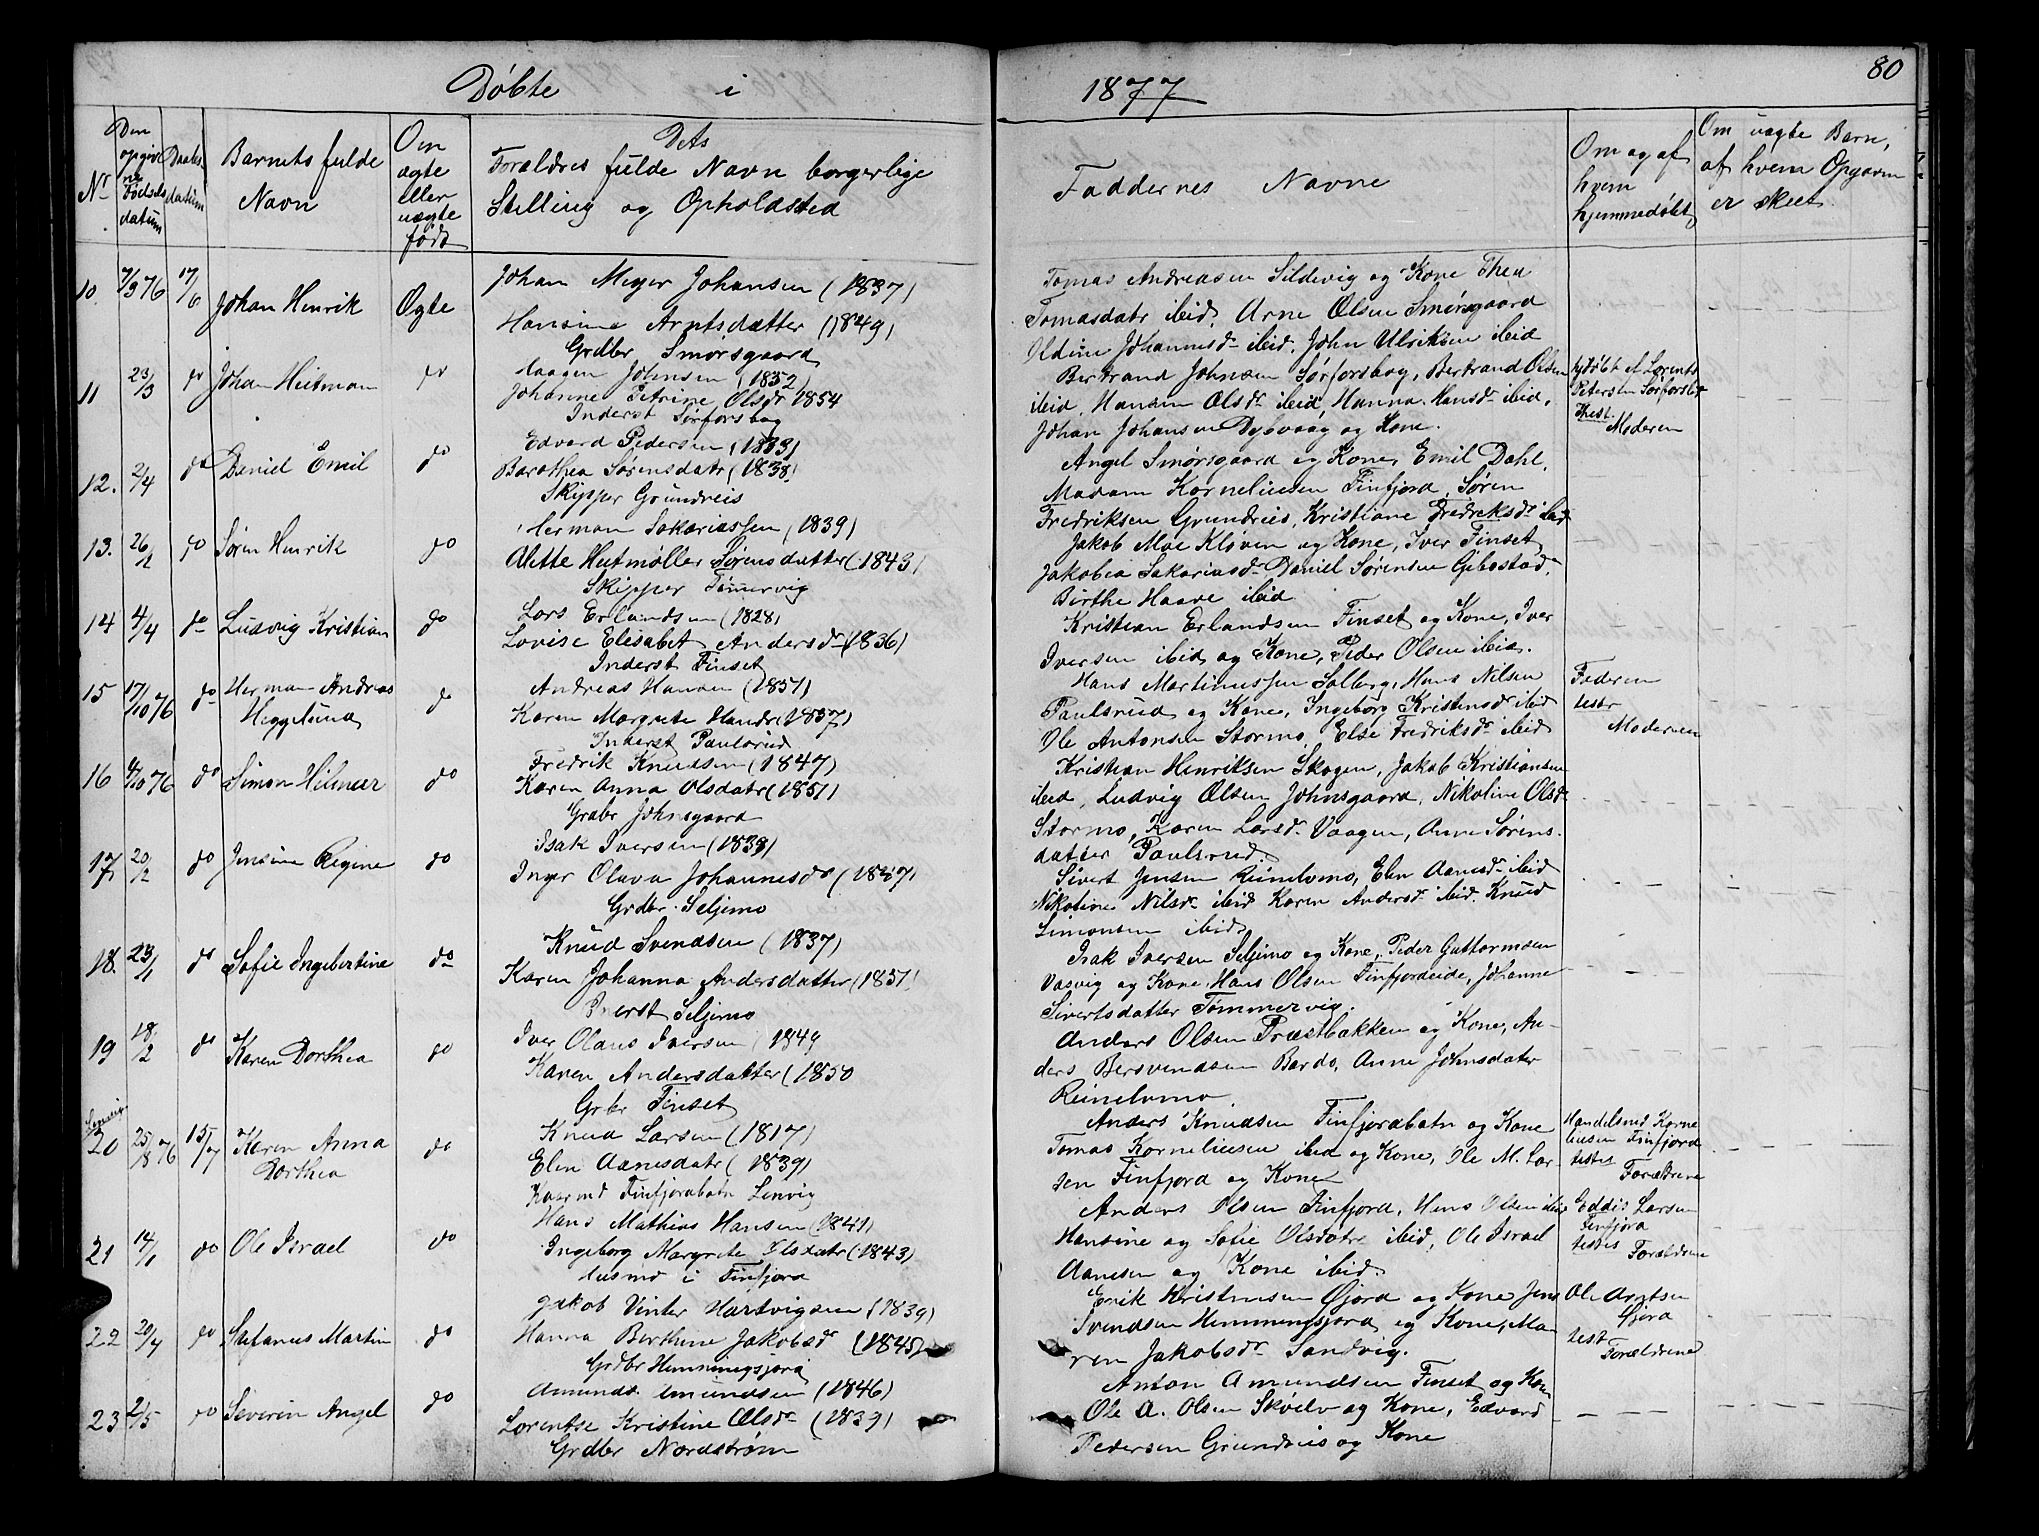 80
Døbte i 1877
Nr
Den opgivne Fødselsdatum
Daabsdatum
Barnets fulde Navn
Om ægte eller uægte født
Dets Forældres fulde Navn borgerlige Stilling og Opholdsted
Faddernes Navne
Om og af hvem hjemmedøbt
Om uægte Barn, af hvem Opgaven er skeet
10. 7/9 76 17/6 Johan Henrik Ægte
Johan Meyer Johansen (1837)
Hansine Arntsdatter (1849)
Grdbr Smørsgaard
Tomas Andreasen Sildevig og Kone Thea
Tomasdatr ibid, Arne Olsen Smørsgaard
Oldine Johannesdr ibid, John Ulriksen ibid
11 23/3 do Johan Heitman do
Haagen Johnsen (1852)
Johanne Petrine Olsdr 1854
Inderst Sørforsbog
Bertrand Johnsen Sørforsbog, Bertrand Olsen
ibid, Hansine Olsdr ibid, Hanna Hansdr ibid,
Johan Johansen Dybvaag og Kone.
hjdøbt af Lorents
Petersen Sørforsbog
Moderen
12. 2/4 do Daniel Emil do
Edvard Pedersen (1833)
Barothea Sørensdatr (1838)
Skipper Grundreis
Angel Smørsgaard og Kone, Emil Dahl,
Madam Korneliusen Finfjord, Søren
Fredriksen Grundreis, Kristiane Fredreksdr ibid
13. 26/2 do Søren Henrik do
Herman Sakariassen (1839)
Alette Heitmøller Sørensdatter (1843)
Skipper Tømervig
Jakob Moe Kløven og Kone, Iver Finset
Jakobia Sakariasdr Daniel Sørensen Gibostad,
Birthe Haave ibid
14 4/4 do Ludvig Kristian do
Lars Erlandsen (1828)
Lovise Elesabet Andersdr (1836)
Inderst Finset
Kristian Erlandsen Finset og Kone, Iver
Iversen ibid og Kone, Peder Olsen ibid.
15 17/10 76 do Herman Andreas do
Heggelund
Andreas Hansen (1851)
Karen Margrete Hansdr (1857)
Inderst Paulsrud
Hans Martinussen Solberg, Hans Nilsen
Paulsrud og Kone, Ingeborg Kristensdr ibid
Ole Antonsen Stormo, Else Fredriksdr ibid
Faderen
testr
Moderen
16 4/10 76 do Simon Hilmar do
Fredrik Knudsen (1847)
Karen Anna Olsdatr (1851)
Grdbr Johnsgaard
Kristian Henriksen Skogen, Jakob Kristiansen
ibid, Ludvig Olsen Johnsgaard, Nikoline Olsdr
Stormo, Karen Larsdr Vaagen, Anne Sørens-
datter Paulsrud.
17, 20/2 do Jensine Regine do
Isak Iversen (1838)
Inger Olava Johannesdr (1847)
Grdbr. Seljemo
Sivert Jensen Reinelvmo, Elen Aanesdr ibid
Nikoline Nilsdr ibid Karen Andersdr ibid. Knud
Simonsen ibid
18. 23/1 do Sofie Ingebertine do
Knud Svendsen (1837)
Karen Johanna Andersdatter (1851)
Inderst Seljemo
Isak Iversen Seljemo og Kone, Peder Guttormsen
Vasvig og Kone, Hans Olsen Finfjordeide, Johanne
Sivertsdatter Tømmervig.
19 18/2 do Karen Dorthea do
Iver Olaus Iversen 1849
Karen Andersdatter (1850
Grbr Finset
Anders Olsen Præstbakken og Kone, An-
ders Bersvendsen Bardo, Anne Johnsdater
Reinelvmo
Lenvig
20 25/8 76 15/7 Karen Anna do
Dorthea
Knud Larsen (1817)
Elen Aanesdatr (1839)
Husmd Finfjordbotn Lenvig
Anders Knudsen Finfjordbotn og Kone
Tomas Kornelinsen ibid og Kone, Ole M. Lar-
sen Finfjord og Kone
Handelsmd Korne-
liusen Finfjord
testes
Forældrene
21 14/1 do Ole Israel do
Hans Mathias Hansen (1841)
Ingeborg Margrete Olsdatr (1843)
Husmd i Finfjord
Anders Olsen Finfjord, Hans Olsen ibid
Hansine og Sofie Olsdatre ibid, Ole Israel
Aanesen og Kone ibid.
Eddis Larsen
Finfjord
testes
Forældrene
22 20/4 do Stefanus Martin do
Jakob Vinter Hartvigsen (1839)
Hanna Berthine Jakobsdr (1845)
Grdbr Hemmingsjord
Erik Kristensen Øjord og Kone, Jens
Svendsen Hemmingsjord og Kone, Ma-
ren Jakobsdr Sandvig.
Ole Arntsen
Øjord
test
Forældrene
23 2/5 do Severin Angel do
Amund Amundsen (1846)
Lorentse Kristine Olsdr (1839)
Grdbr Nordstrøm
Anton Amundsen Finset og Kone
Ole A. Olsen Skoelv og Kone, Edvard
Pedersen Grundreis og Kone